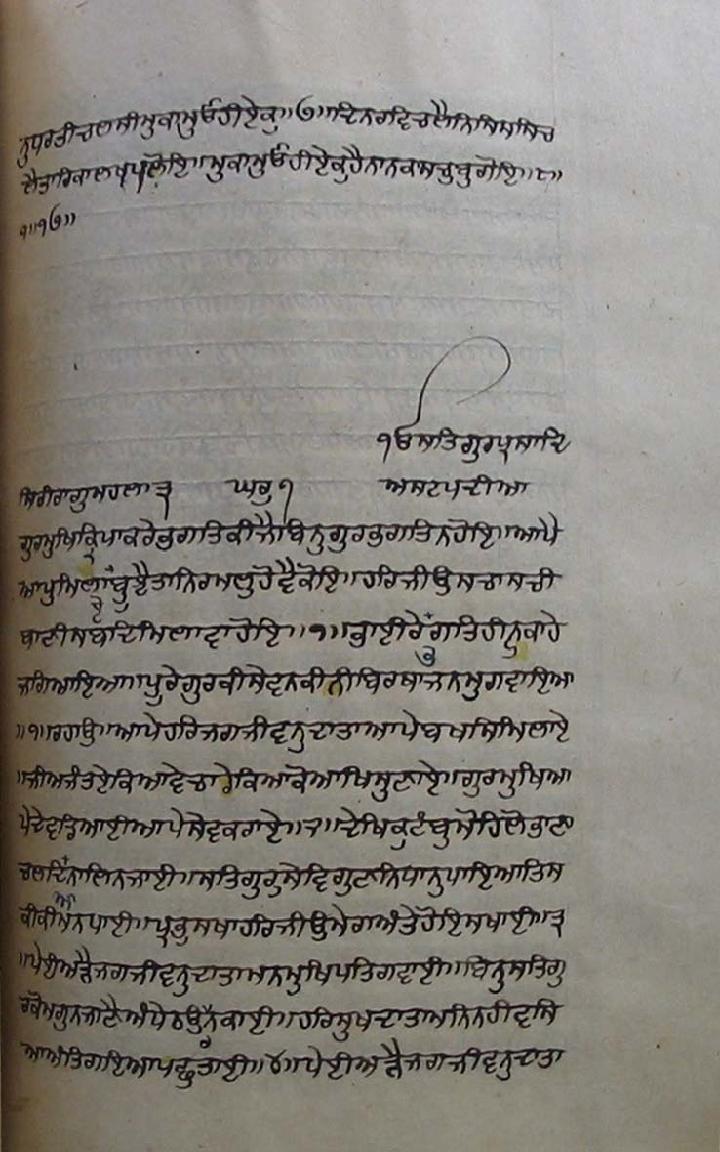 ਨੁਧਰਤੀਚਲਸੀਮੁਕਾਮੁਓਹੀਏਕੁ॥੭॥ਦਿਨਰਵਿਚਲੈਨਿਸਿਸਸਿਚ
ਲੈਤਾਰਿਕਾਲਖਪਲੋਇ॥ਮੁਕਾਮੁਓਹੀਏਕੁਹੈਨਾਨਕਾਸਚੁਬੁਗੋਇ॥੮॥
੧॥੧੭॥
੧ਓਸਤਿਗੁਰਪ੍ਰਸਾਦਿ
ਸਿਰੀਰਾਗੁਮਹਲਾ੩ ਘਰੁ੧ ਅਸਟਪਦੀਆ
ਗੁਰਮੁਖਿਕ੍ਰਿਪਾਕਰੇਭਗਤਿਕੀਜੈਬਿਨੁਗੁਰਭਗਤਿਨਹੋਇ॥ਆਪੈ
ਆਪੁਮਿਲਾਏਬੂਝੈਤਾਨਿਰਮਲੁਹੋਵੈਕੋਇ॥ਹਰਿਜੀਉਸਚਾਸਚੀ
ਬਾਣੀਸਬਦਿਮਿਲਾਵਾਹੋਇ॥੧॥ਭਾਈਰੇਭਗਤਿਹੀਨੁਕਾਹੇ
ਜਗਿਆਇਆ॥ਪੂਰੇਗੁਰਕੀਸੇਵਨਕੀਨੀਬਿਰਥਾਜਨਮੁਗਵਾਇਆ
॥੧॥ਰਹਾਉ॥ਆਪੇਹਰਿਜਗਜੀਵਨੁਦਾਤਾਆਪੇਬਖਸਿਮਿਲਾਏ
॥ਜੀਅਜੰਤਏਕਿਆਵੇਚਾਰੇਕਿਆਕੋਆਖਿਸੁਣਾਏ॥ਗੁਰਮੁਖਿਆ
ਪੇਦੇਵਡਿਆਈਆਪੇਸੇਵਕਰਾਏ॥੨॥ਦੇਖਿਕੁਟੰਬੁਮੋਹਿਲੋਭਾਣਾ
ਚਲਦਿਆਨਾਲਿਨਜਾਈ॥ਸਤਿਗੁਰੁਸੇਵਿਗੁਣਨਿਧਾਨੁਪਾਇਆਤਿਸ
ਕੀਕੀਮਨਪਾਈ॥ਪ੍ਰਭੁਸਖਾਹਰਿਜੀਉਮੇਰਾਅੰਤੇਹੋਇਸਖਾਈ॥੩
॥ਪੇਈਅੜੈਜਗਜੀਵਨੁਦਾਤਾਮਨਮੁਖਿਪਤਿਗਵਾਈ॥ਬਿਨੁਸਤਿਗੁ
ਰਕੋਮਗੁਨਜਾਣੈਅੰਧੇਠਉਰਨਕਾਈ॥ਹਰਿਸੁਖਦਾਤਾਮਨਿਨਹੀਵਸਿ
ਆਅੰਤਿਗਇਆਪਛੁਤਾਈ॥੪॥ਪੇਈਅੜੈਜਗਜੀਵਨੁਦਾਤਾ